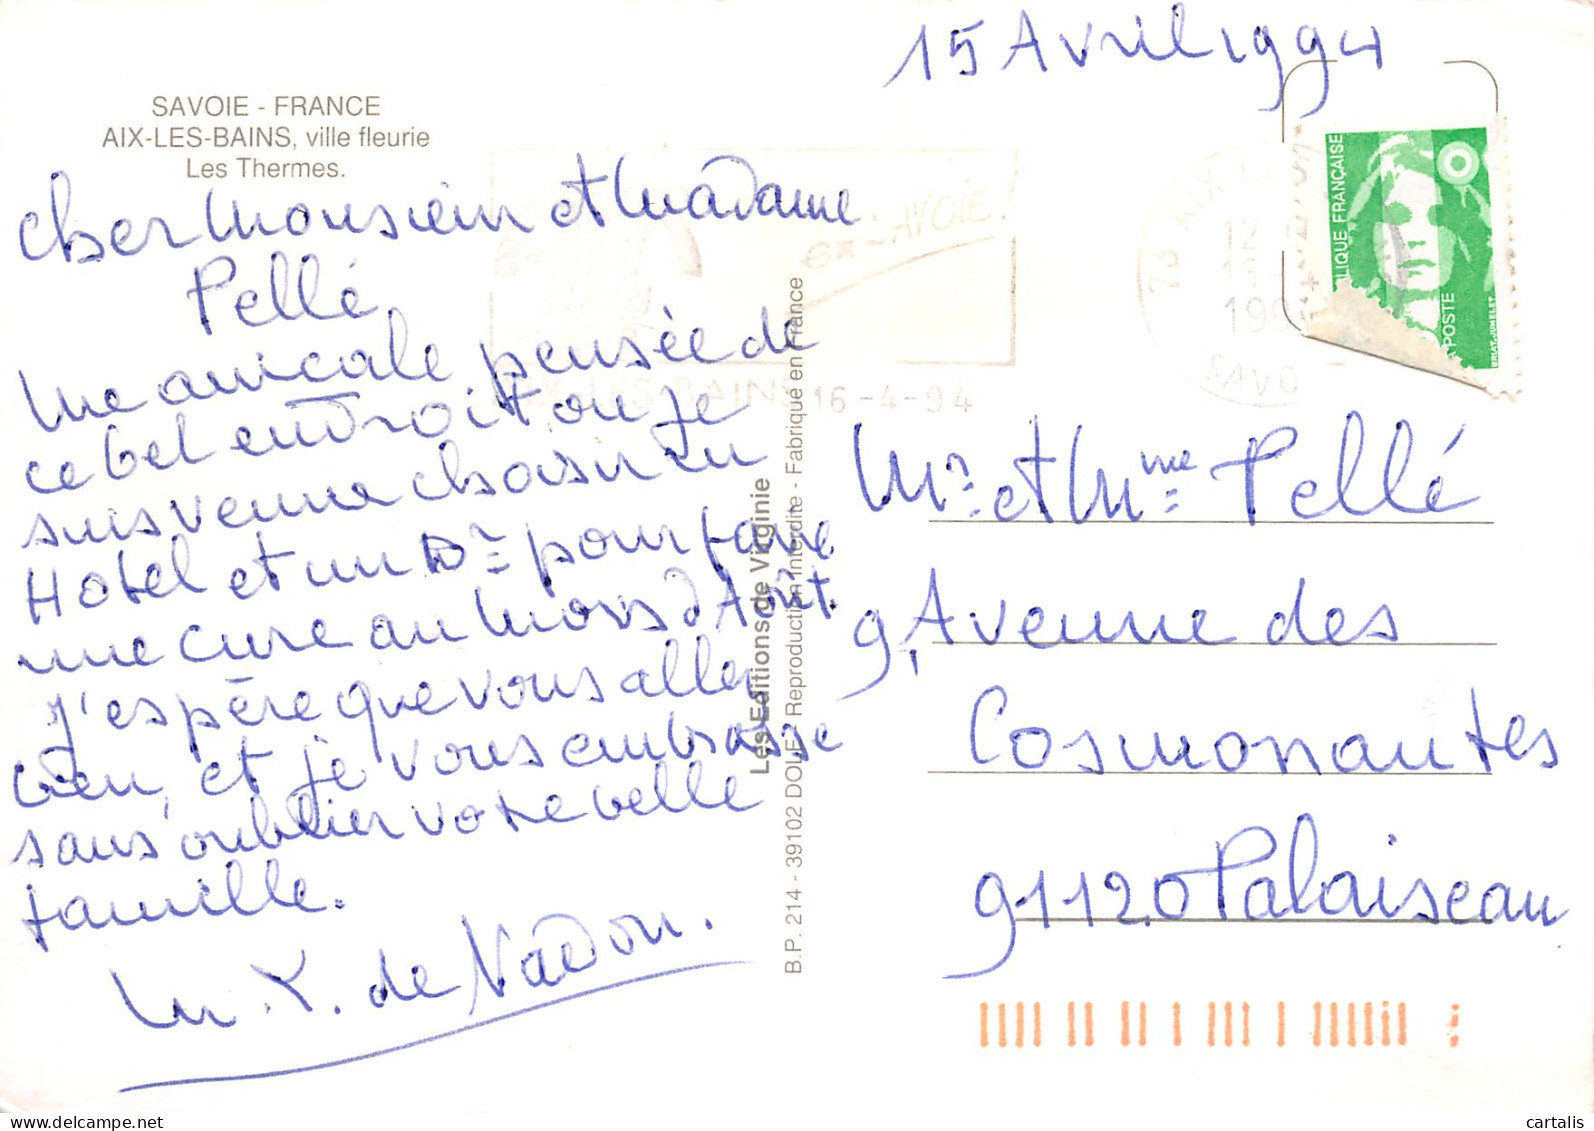 15 Avril 1994
SAVOIE - FRANCE
AIX-LES-BAINS, ville fleurie
Les Thermes.
Cher Monsieur et Madame
Pellé
Une amicale pensée de
ce bel endroit ou je
suis venue choisir un
Hotel et un Dr pour faire
une cure au Mois d'Août.
J'espère que vous aller
bien, et je vous embrasse
sans oublier votre belle
famille.
de Nadon.
Les Editions de Virginie
B.P. 214 - 39102 DOLE - Reproduction Interdite - Fabriqué en France
en-SAVOIE!
AIX-LES-BAINS 16-4-94
73 AIX LES
12
199
SAVO
RÉPUBLIQUE FRANÇAISE
POSTE
BRIAT-JUMELET
Mr et Mme Pellé
9, Avenue des
Cosmonautes
91120 Palaiseau
www.delcampe.net
cartalis